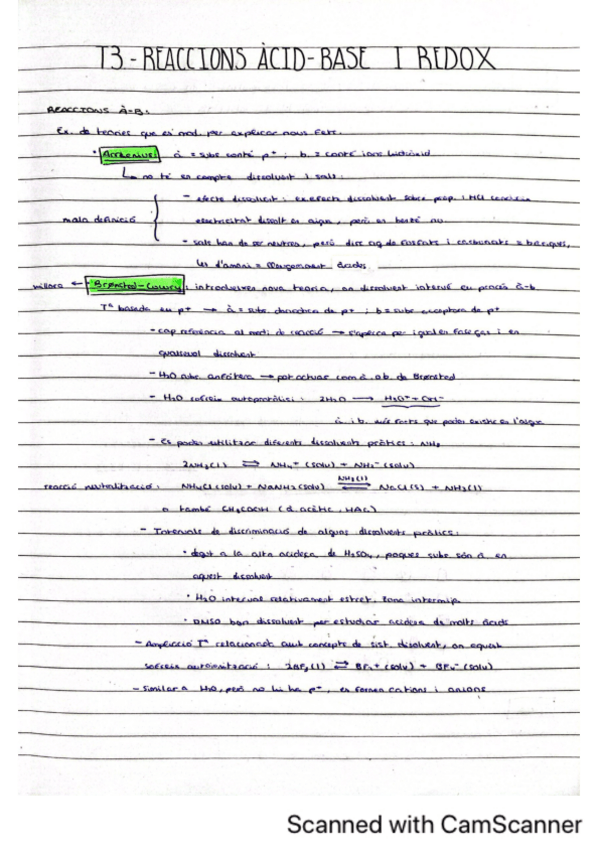 T3.- REACCIONS ÀCID-BASE I REDOX
REACCIONS À-B:
Ex. de teories que es mod. per explicar nous fets.
· Arrhenius: à = subs conté p+ ; b = conté ions hidròxid
no té en compte dissolvent i sals:
- efecte dissolvent: ex. efecte dissolvent sobre prop. HCl condueix
mala definició
electricitat dissolt en aigua, però en benzè no.
- sals han de ser neutres, però diss aq de fosfats i carbonats = bàsiques,
les d'amoni = lleugerament àcides
millora ← Brønsted-Lowry: introdueixen nova teoria, on dissolvent intervé en procés à-b.
Tª basada en p+ → à = subs donadora de p+ ; b = subs acceptora de p+
- cap referència al medi de reacció → s'aplica per igual en fase gas i en
qualsevol dissolvent
- H2O subs. amfòtera → pot actuar com à. o b. de Brønsted
- H2O sofreix autoprotòlisi : 2H2O → H3O+ + OH-
à. i b. més forts que poden existir en l'aigua
- Es poden utilitzar diferents dissolvents pròtics : NH3
2NH3(l) ⇌ NH4+ (solv) + NH2- (solv)
reacció neutralització : NH4Cl (solv) + NaNH2 (solv) ⇌ NH3(l) NaCl(s) + NH3(l)
o també CH3COOH (à. acètic, HAc)
- Intervals de discriminació de alguns dissolvents pròtics:
· degut a la alta acidesa de H2SO4, poques subs són à. en
aquest dissolvent
· H2O interval relativament estret, zona intermitja.
· DMSO bon dissolvent per estudiar acidesa de molts àcids
- Ampliació Tª relacionat amb concepte de sist. dissolvent, on aquest
sofreix autoionització : 2BrF3(l) ⇌ BrF2+ (solv) + BrF4- (solv)
- Similar a H2O, però no hi ha p+, es formen cations i anions
Scanned with CamScanner